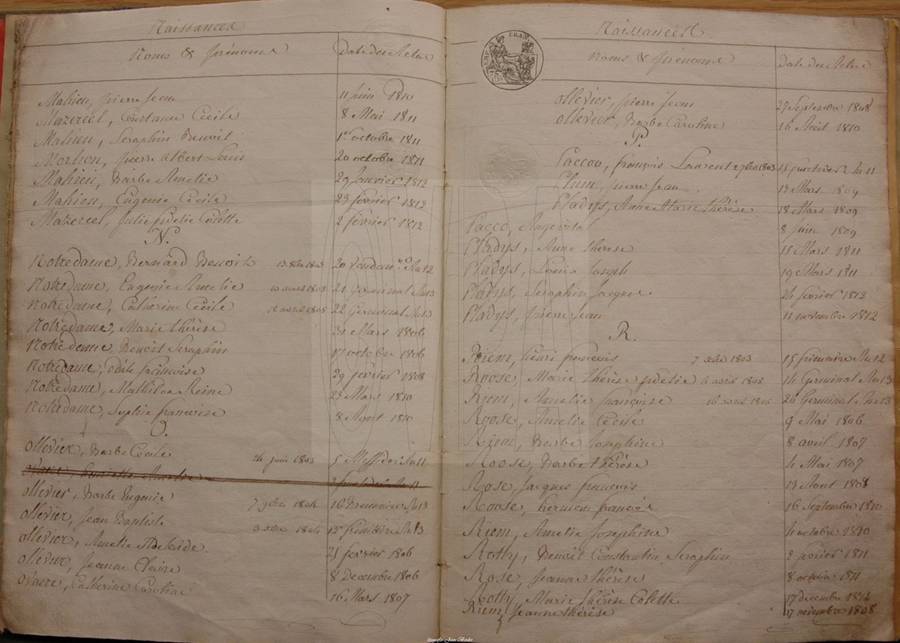 Naissances
Noms & prénoms Date des Actes
Mahieu, pierre jean 11 juin 1810
Mazereel, Constance Cécile 8 Mai 1811
Mahieu, Seraphin Benoit 1er octobre 1811
pierre Albert Louis 20 octobre 1811
Mahieu, Barbe Amelie 29 janvier 1812
Mahieu, Eugenie Cécile 23 février 1812
Mazereel, julie fidelle Colette 2 février 1812
N.
Notredame, Bernard Benoit 20 An 12
Notredame, Eugenie Amelie 21 Germinal An 13
Notredame, Catherine Cécile 22 Germinal An 13
Notredame, Marie thérèse 21 Mars 1806
Notredame, Benoit Seraphin 17 octobre 1806
Notredame, françoise 29 février 1808
Notredame, Mathilde Reine 23 Mai 1810
Notredame, Sophie françoise 8 Aout 1810
O.
ollevier, Barbe Cécile 24 juin 1803 5 Messidor An 11
ollevier, Barbe Eugenie 7 9bre 1804 16 Brumaire An 13
ollevier, Jean Baptiste 3 Xbre 1804 12 frimaire An 13
ollevier, Amelie Adelaide 21 février 1806
ollevier, Jeanne Claire 8 Decembre 1806
ovaere, Catherine Caroline 16 Mars 1807
Naissances
Noms & prénoms Date des Actes
ollevier, pierre jean 27 Septembre 1808
ollevier, Barbe Caroline 16 Août 1810
P.
Paccou, françois Laurent An 11
pierre jean 13 Mars 1804
Pladys, Anne Marie thérèse 18 Mars 1809
8 juin 1809
Pladys, Anne thérèse 15 Mars 1811
Pladys, Louis Joseph 19 Mars 1811
Pladys, Seraphin Jacques 26 février 1812
Pladys, pierre jean 11 novembre 1812
R.
Riem, henri francois 7 Xbre 1803 15 frimaire An 12
Roose, Marie thérèse fidelie 4 avril 1805 14 Germinal An 13
Riem, Amelie françoise 16 avril 1805 26 Germinal An 13
Roose, Amelie Cécile 9 Mai 1806
Riem, Barbe Josephine 8 avril 1807
Roose, Barbe thérèse 4 Mai 1807
Rose, Jacques francois 13 Aout 1808
Roose, francois 16 Septembre 1810
Riem, Amelie Josephine 4 octobre 1810
Rotty, Benoit Constantin Seraphin 3 1811
Rose, Jeanne thérèse 8 octobre 1811
Rotty, Marie thérèse Colette 17 decembre 1812
Riem, Jeanne thérèse 17 1808